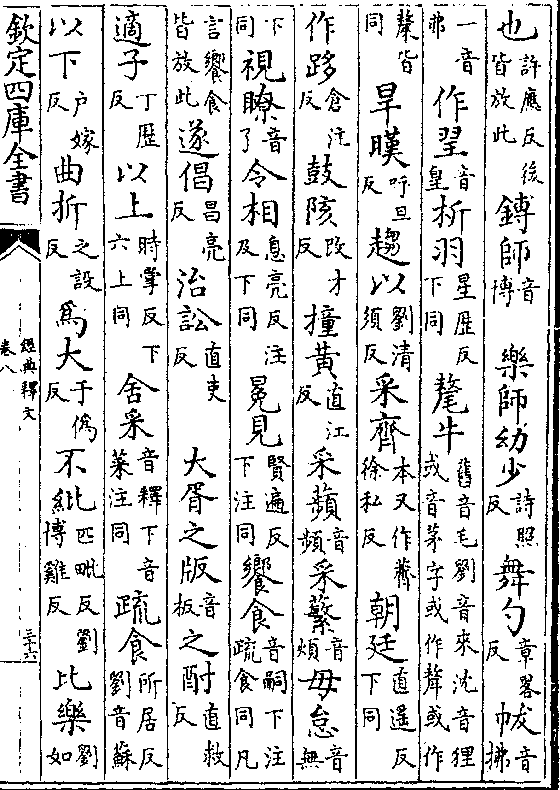 也許應反後皆放此鎛師音博樂師幼少詩照反舞勺章畧反帗音拂
一音弗作翌音皇析羽星歴反下同氂牛舊音毛劉音來沈音狸或音茅字或作斄或作
犛皆同旱暵呼旦反趨以劉清須反采齊本又作薺徐私反朝廷直遥反下同
作跢倉注反鼓陔改才反撞黄直江反采蘋音頻采蘩音煩毋怠音無
下同視瞭音了令相息亮反注及下同冕見賢遍反下注同饗食音嗣下注疏食同凡
言饗食皆放此遂倡昌亮反治訟直吏反大胥之版音板之酎直救反
適子丁歴反以上時掌反下六上同舍采音釋下音菜注同疏食所居反劉音蘇
以下户嫁反曲折之設反爲大于偽反不紕匹毗反劉博雞反比樂劉如
欽定四庫全書
經典釋文
卷八
三十六